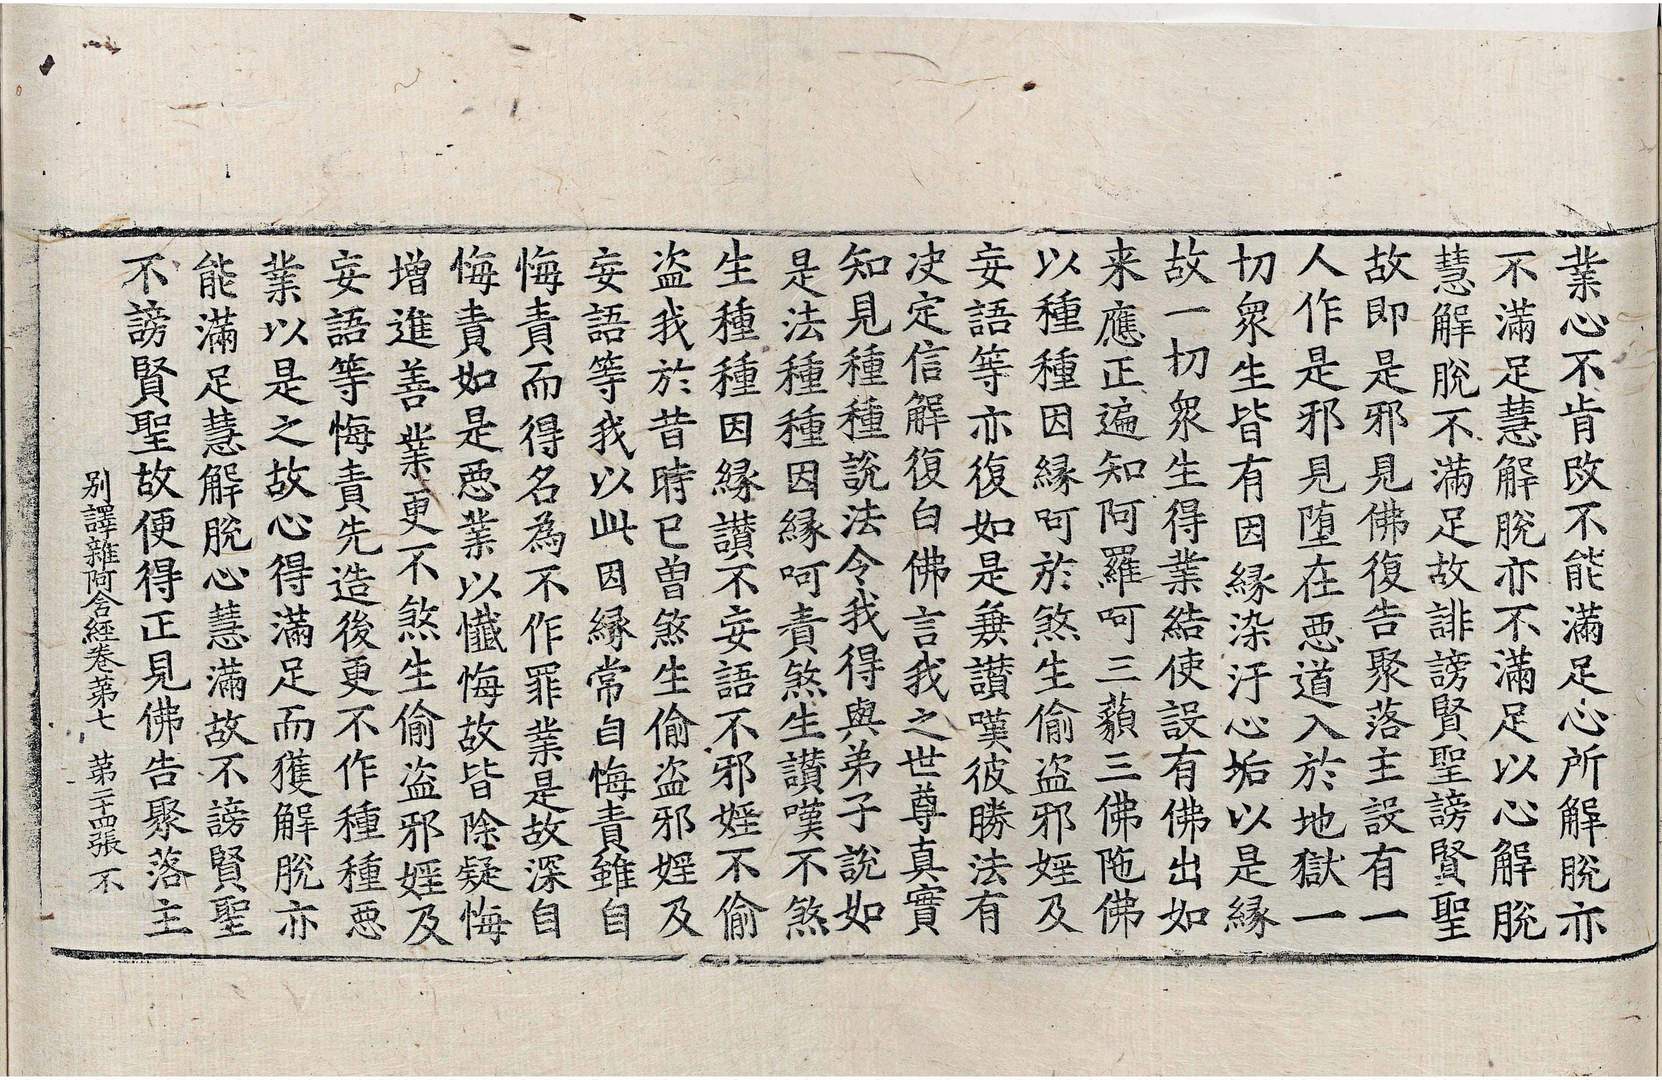 業心不肯改不能滿足心所解脫亦
不滿足慧解脫亦不滿足以心解脫
慧解脫不滿足故誹謗賢聖謗賢聖
故即是邪見佛復告聚落主設有一
人作是邪見墮在惡道入於地獄一
切衆生皆有因縁染汙心垢以是縁
故一切衆生得業結使設有佛出如
来應正遍知阿羅呵三藐三佛陁佛
以種種因縁呵於煞生偷盗邪婬及
妄語等亦復如是兼讃嘆彼勝法有
决定信解復白佛言我之世尊真實
知見種種說法令我得與弟子說如
是法種種因縁呵責煞生讃嘆不煞
生種種因縁讃不妄語不邪婬不偷
盗我於昔時已曽煞生偷盗邪婬及
妄語等我以此因縁常自悔責雖自
悔責而得名為不作罪業是故深自
悔責如是惡業以懺悔故皆除疑悔
增進善業更不煞生偷盗邪婬及
妄語等悔責先造後更不作種種惡
業以是之故心得滿足而獲解脫亦
能滿足慧解脫心慧滿故不謗賢聖
不謗賢聖故便得正見佛告聚落主
别譯雜阿含經卷第七 第二十四張 不